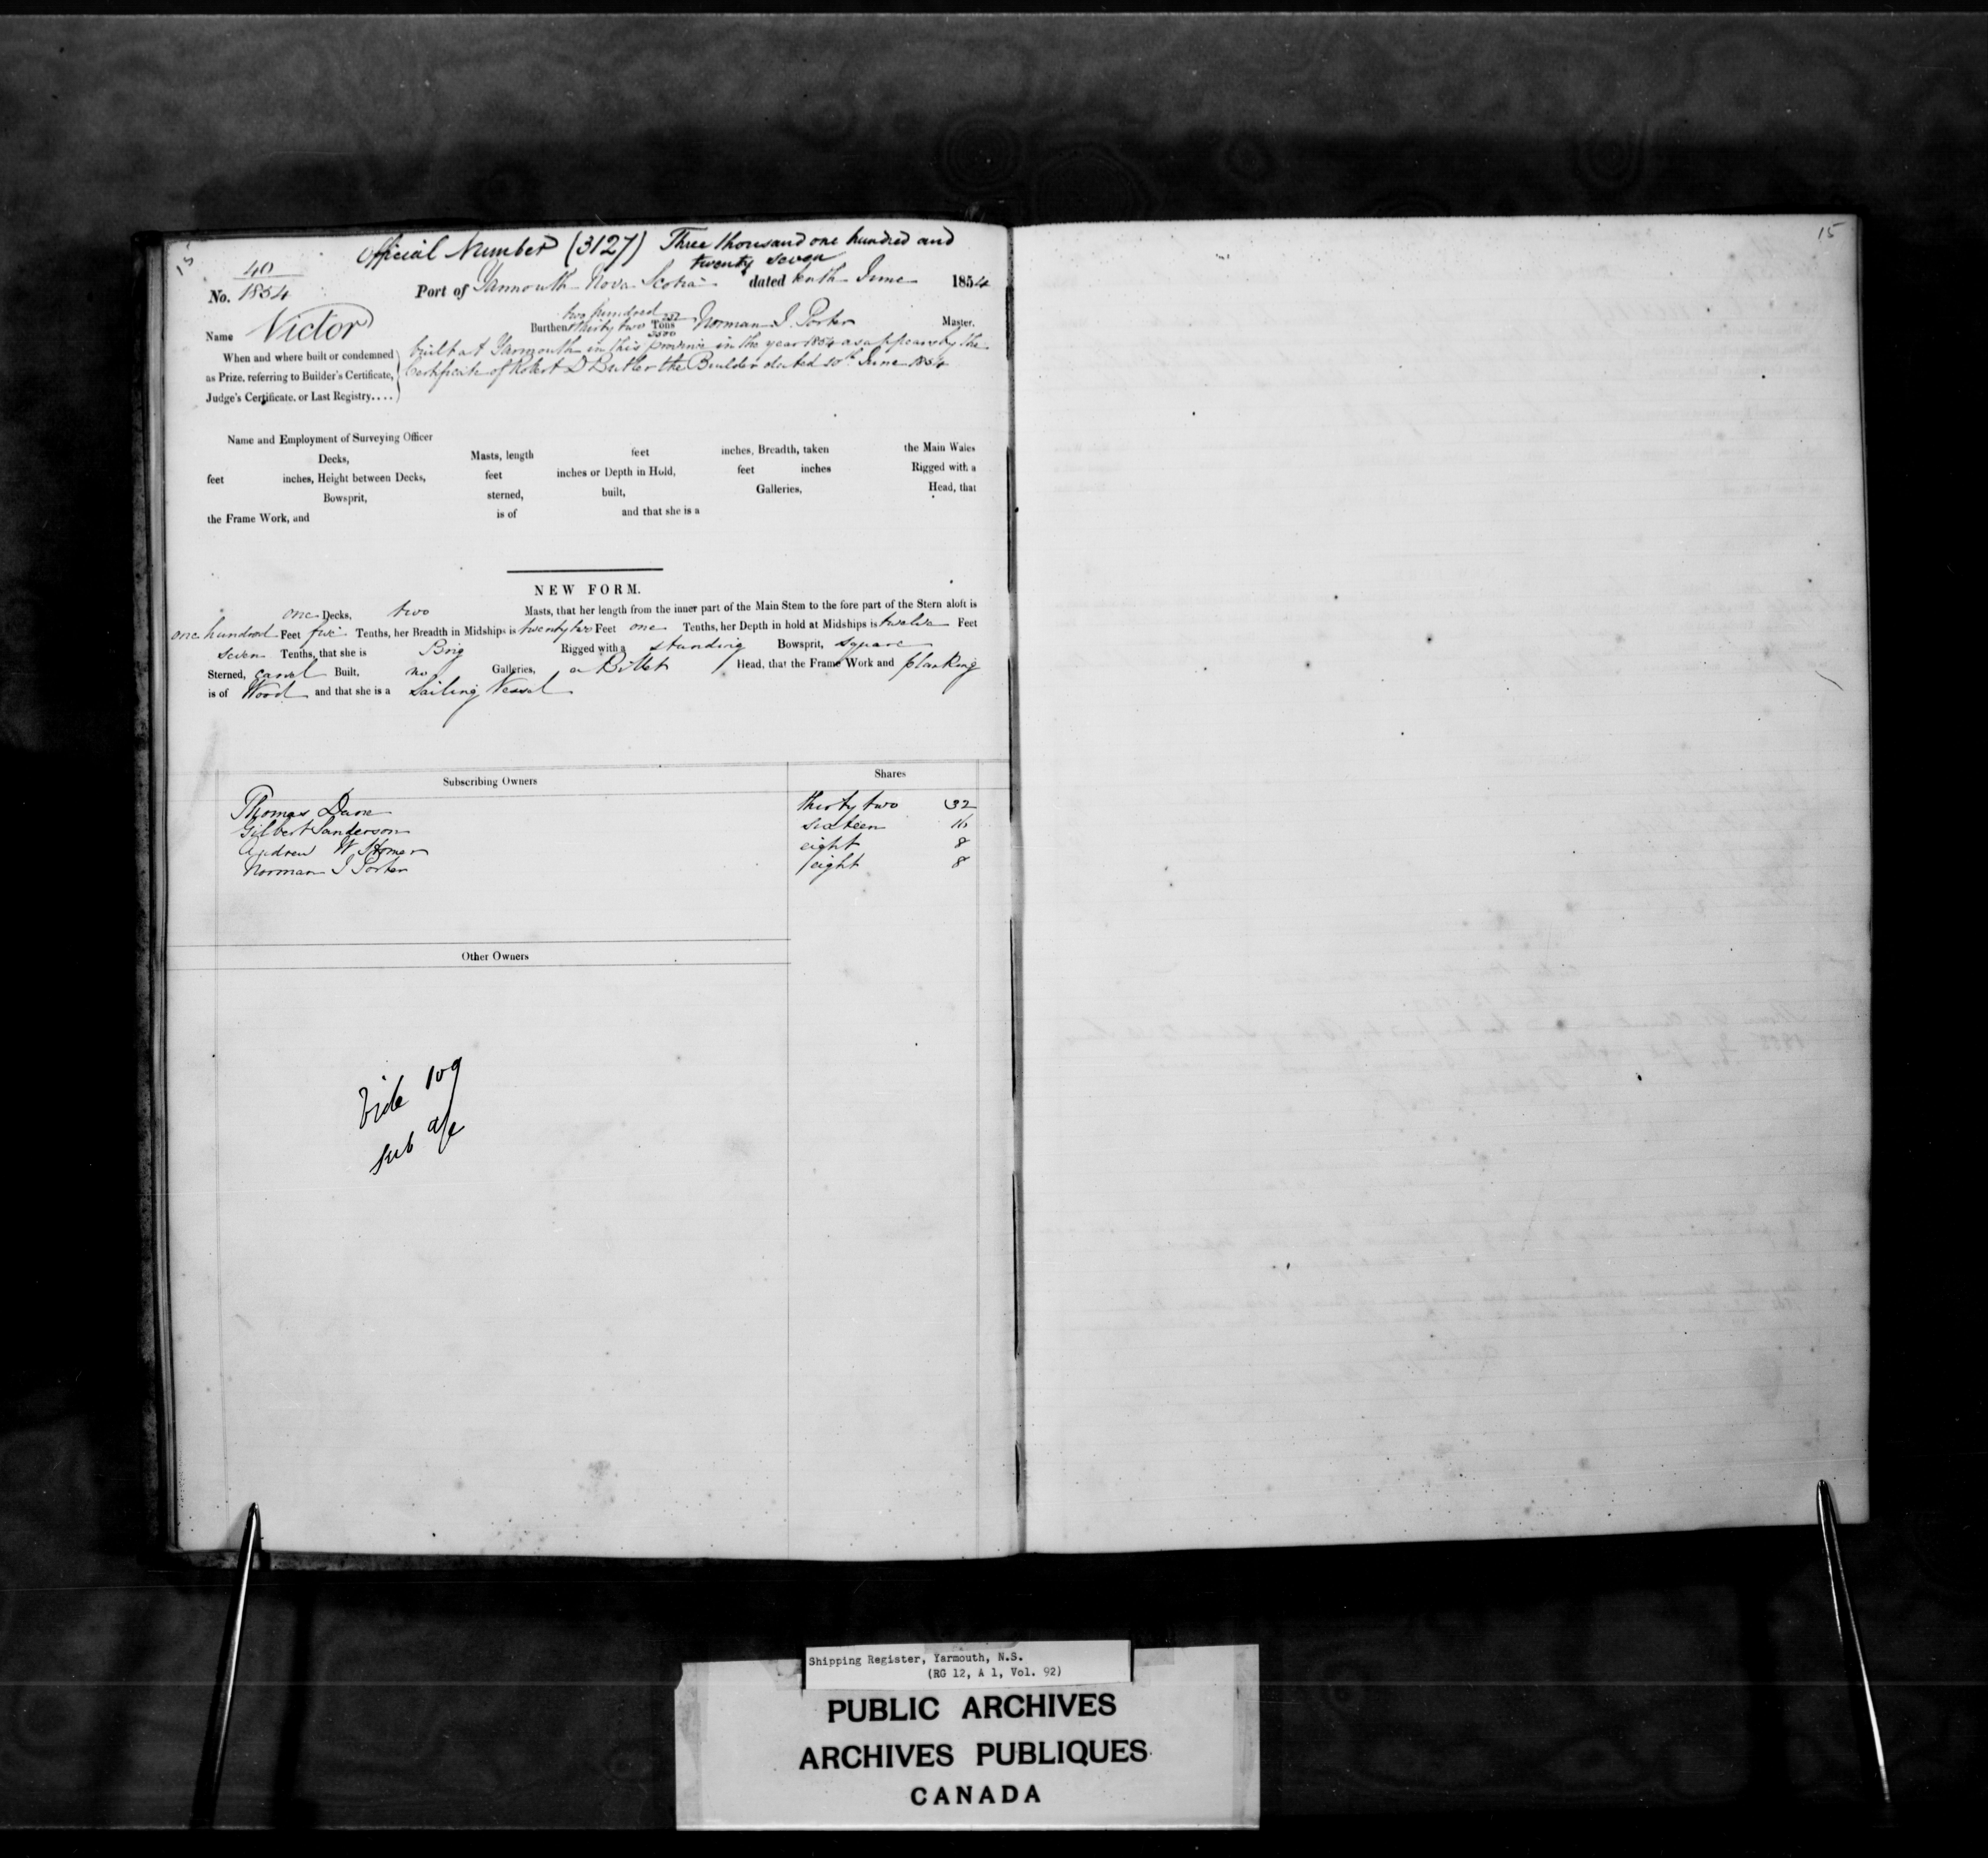 15
Official Number (3127) Three thousand one hundred and
twenty seven
40
No. 1854
Port of Yarmouth Nova Scotia dated tenth June 1854
Name Victor
two hundred
Burthen thirty two Tons Norman J. Porter Master.
3500
When and where built or condemned
as Prize, referring to Builder's Certificate,
Judge's Certificate, or Last Registry....
built at Yarmouth in this province in the year 1854 as appears by the
Certificate of Robert D Butler the Builder dated 10th June 1854
Name and Employment of Surveying Officer
Decks, Masts, length feet inches, Breadth, taken the Main Wales
feet inches, Height between Decks, feet inches or Depth in Hold, feet inches Rigged with a
Bowsprit, sterned, built, Galleries, Head, that
the Frame Work, and is of and that she is a
NEW FORM.
one Decks, two Masts, that her length from the inner part of the Main Stem to the fore part of the Stern aloft is
one hundred Feet five Tenths, her Breadth in Midships is twenty two Feet one Tenths, her Depth in hold at Midships is twelve Feet
seven Tenths, that she is Brig Rigged with a standing Bowsprit, square
Sterned, carvel Built, no Galleries, a Billet Head, that the Frame Work and planking
is of Wood and that she is a Sailing Vessel
Subscribing Owners Shares
Thomas Dane thirty two 32
Gilbert Sanderson sixteen 16
Andrew W Homer eight 8
Norman J Porter eight 8
Other Owners
Vide 109
sub a/c
15
Shipping Register, Yarmouth, N.S.
(RG 12, A 1, Vol. 92)
PUBLIC ARCHIVES
ARCHIVES PUBLIQUES
CANADA